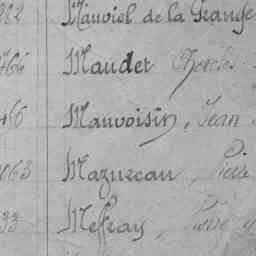 982 Mauviel de la Grange
464 Maudet Charles
46 Mauvoisin, Jean
063 Mazureau, Pierre
33 Meffray, Pierre